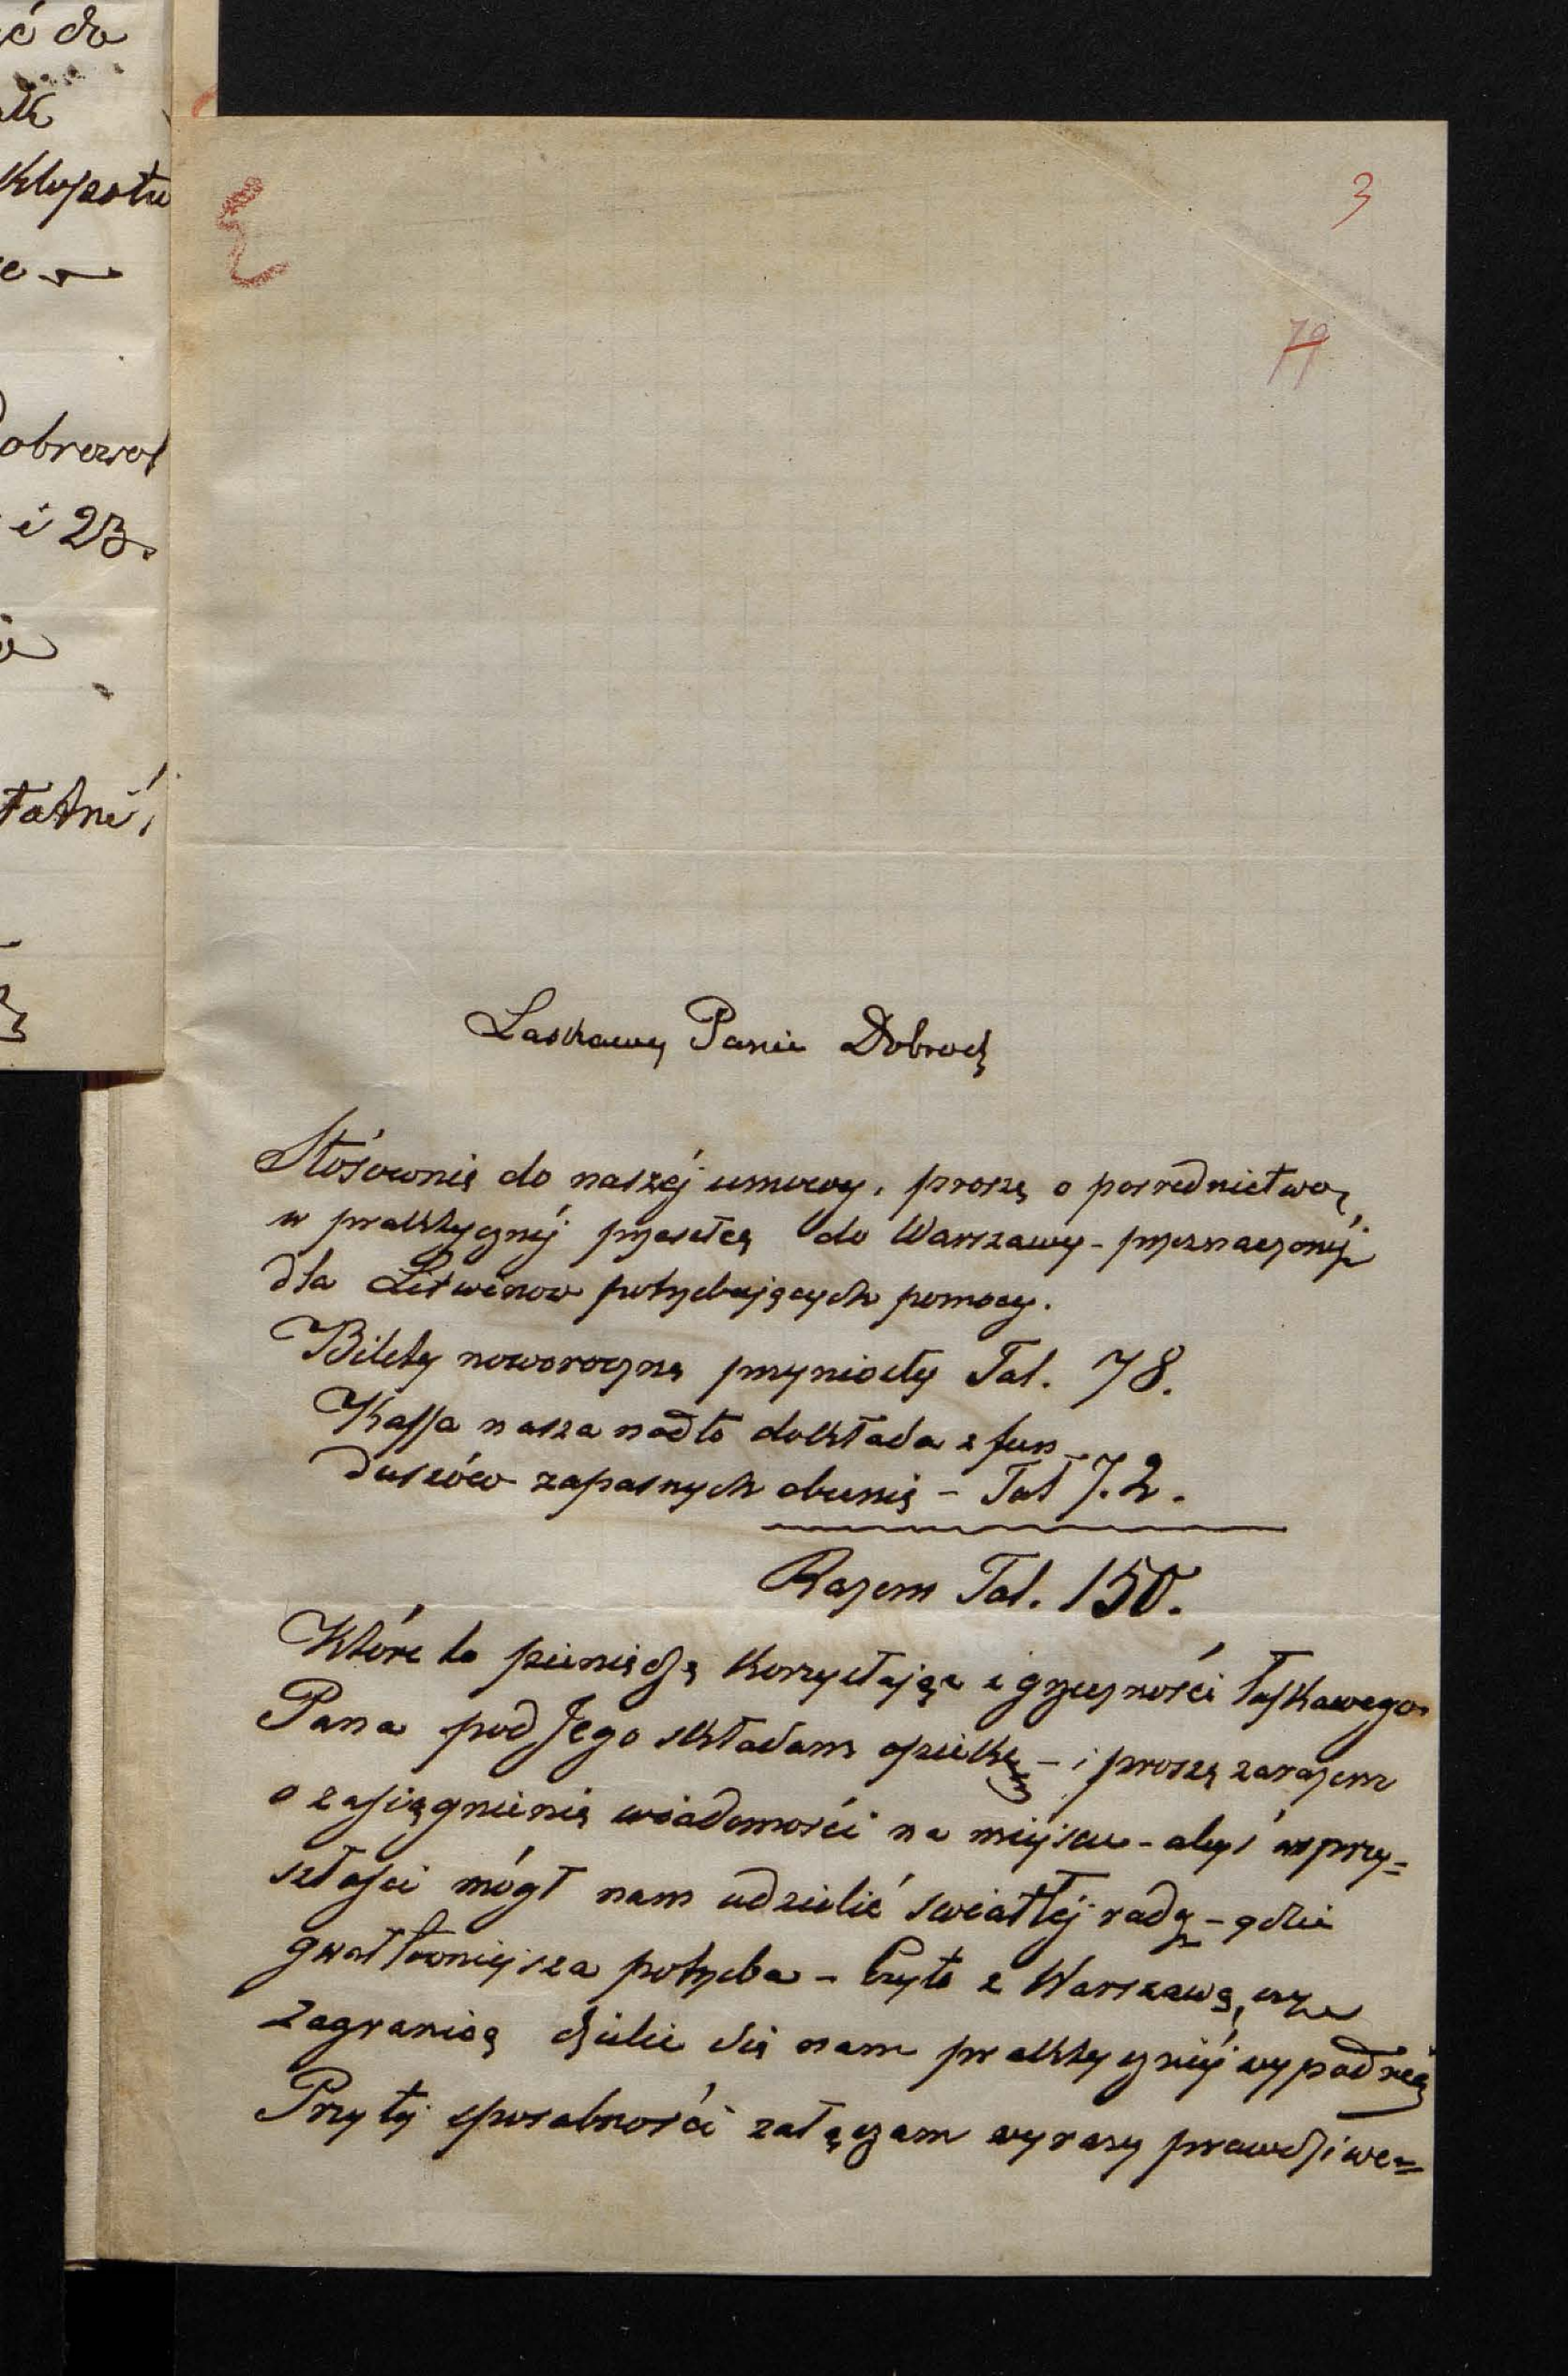 ć do
Kłopotu
i 23.
3
79
Łaskawy Panie Dobrodz
Stósownie do naszéj umowy, proszę o posrednictwo,
w praktycznéj przesełce do Warszawy - przeznaczonéj
dla Litwinow potrzebujących pomocy.
Bilety noworoczne przyniosły Tal. 78.
Kassa nasza nadto dokłada z fun-
duszów zapasnych obecnie - Tal 72.
Razem Tal. 150.
Które to pieniądze korzystając z grzeczności łaskawego
Pana pod Jego składam opiekę - i proszę zarazem
o zasięgnienie wiadomości na miejscu - abyś w przy=
szłosci mógł nam udzielić swiatłéj rady - gdzie
gwałtowniejsza potrzeba - Czyto z Warszawą, czy
zagranicą dzielić się nam praktyczniéj wypadnie
Przy téj sposobności załączam wyrazy prawdziwe=